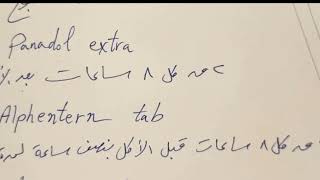 Panadol extra
٢ حبه كل ٨ ساعات بعد
Alphentern tab
حبه كل ٨ ساعات قبل الأكل بنصف ساعة لمدة